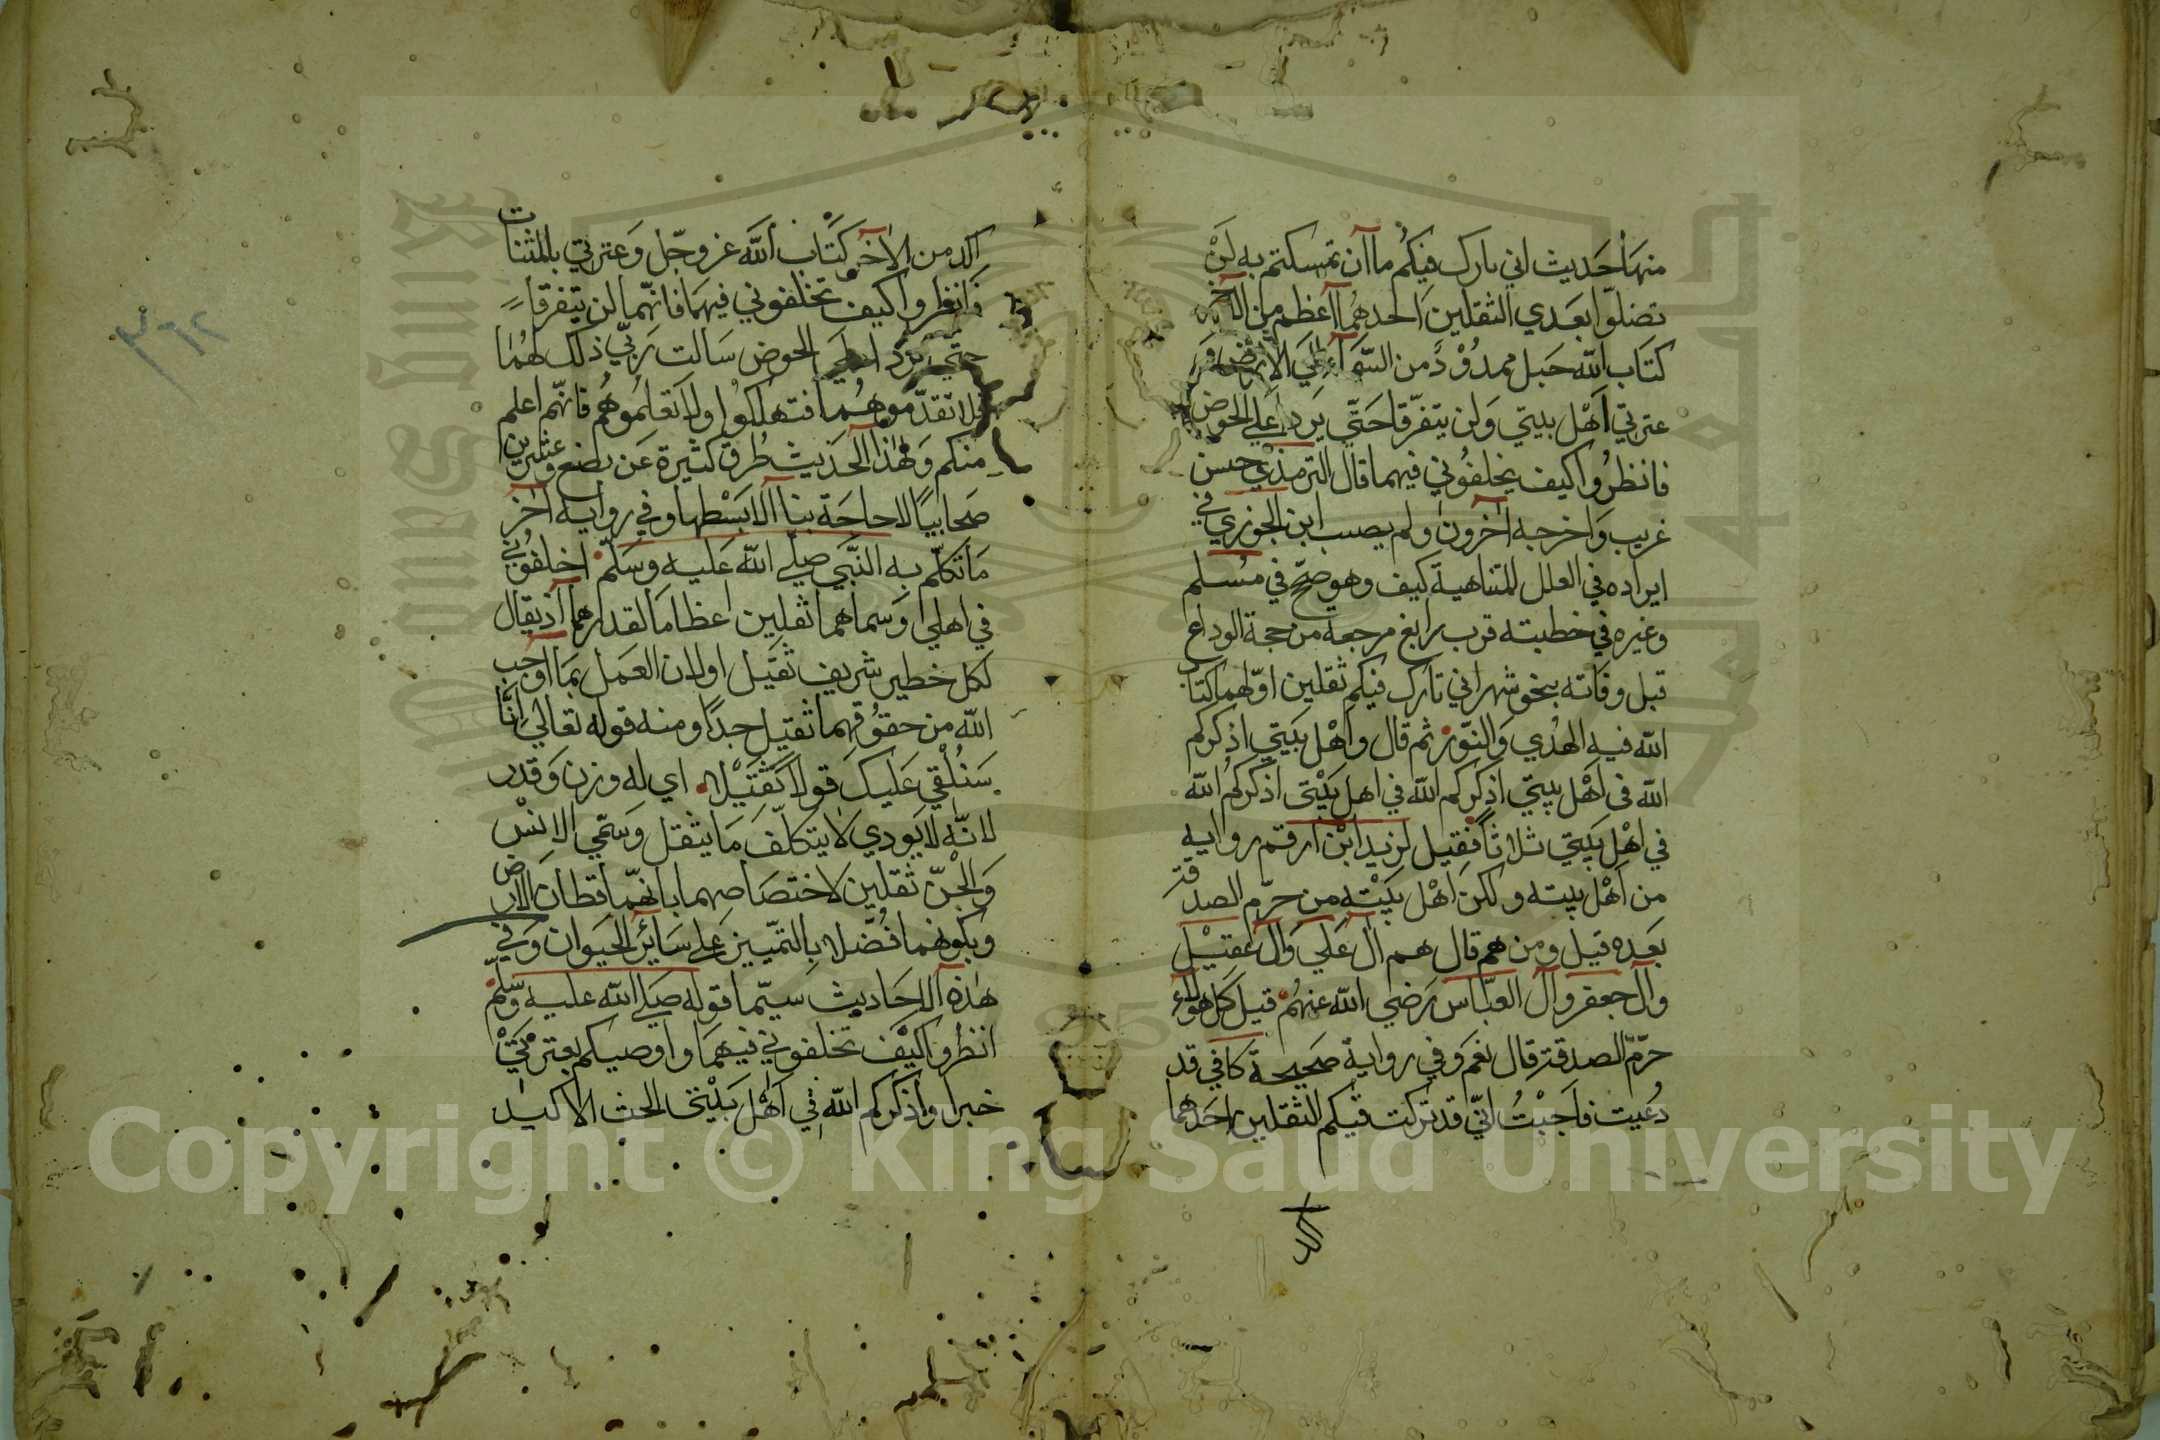 منها حديث اني تارك فيكم ما ان تمسكتم به لن
تضلوا بعدي الثقلين احدهما اعظم من الآخر
كتاب الله حبل ممدود من السماء الى الارض و
عترتي اهل بيتي ولن يتفرقا حتى يردا علي الحوض
فانظروا كيف تخلفوني فيهما قال الترمذي حسن
غريب واخرجه آخرون ولم يصب ابن الجوزي في
ايراده في العلل المتناهية كيف وهو صح في مسلم
وغيره في خطبته قرب رابغ مرجعه من حجة الوداع
قبل وفاته بنحو شهر اني تارك فيكم ثقلين اولهما كتاب
الله فيه الهدي والنور ثم قال واهل بيتي اذكركم
الله في اهل بيتي اذكركم الله في اهل بيتي اذكركم الله
في اهل بيتي ثلاثا فقيل لزيد ابن ارقم رواية
من اهل بيته ولكن اهل بيته من حرم الصدقة
بعده قيل ومن هم قال هم ال علي وال عقيل
وال جعفر وال العباس رضي الله عنهم قيل كل هؤلاء
حرم الصدقة قال نعم وفي رواية صحيحة كاني قد
دعيت فاجبت اني قد تركت فيكم الثقلين احدهما
اكد
اكد من الآخر كتاب الله عز وجل وعترتي بالمثناة
فانظروا كيف تخلفوني فيهما فانهما لن يتفرقا
حتى يردا علي الحوض سالت ربي ذلك لهما
فلا تقدموهما فتهلكوا ولا تعلموهم فانهم اعلم
منكم ولهذا الحديث طرق كثيرة عن بضع وعشرين
صحابيا لا حاجة بنا الا بسطها وفي رواية اخر
ما تكلم به النبي صلى الله عليه وسلم اخلفوني
في اهلي وسماهما ثقلين اعظاما لقدرهما اذ يقال
لكل خطير شريف ثقيل اولان العمل بما اوجب
الله من حقوقهما ثقيل جدا ومنه قوله تعالى انا
سنلقي عليك قولا ثقيلا اي له وزن وقدر
لانه لا يودي الا بتكلف ما يثقل وسمي الانس
والجن ثقلين لاختصاصهما بانهما قطان الارض
وبكونهما فضلا بالتمييز على سائر الحيوان وفي
هذه الاحاديث سيما قوله صلى الله عليه وسلم
انظروا كيف تخلفوني فيهما واوصيكم بعترتي
خيرا واذكركم الله في اهل بيتي الحث الاكيد
Copyright © King Saud University